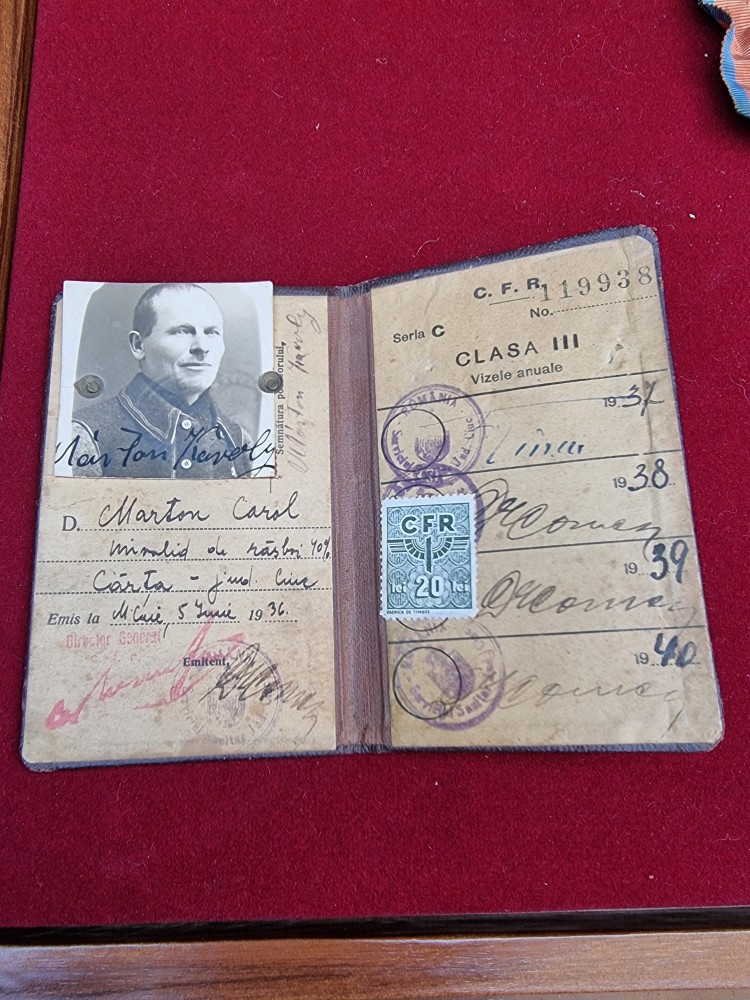 Márton Károly
Semnătura posesorului,
Márton Károly
D. Marton Carol
invalid de răsboi 40%
Cârța - jud. Ciuc
Emis la M Ciuc, 5 Iunie 1936.
Director General
Emitent,
C. F. R.
No. 119938
Seria C
CLASA III
Vizele anuale
1937
ROMÂNIA
Jud. Ciuc
1938
CFR
lei 20 lei
FABRICA DE TIMBRE
1939
1940
Serviciul Sanitar